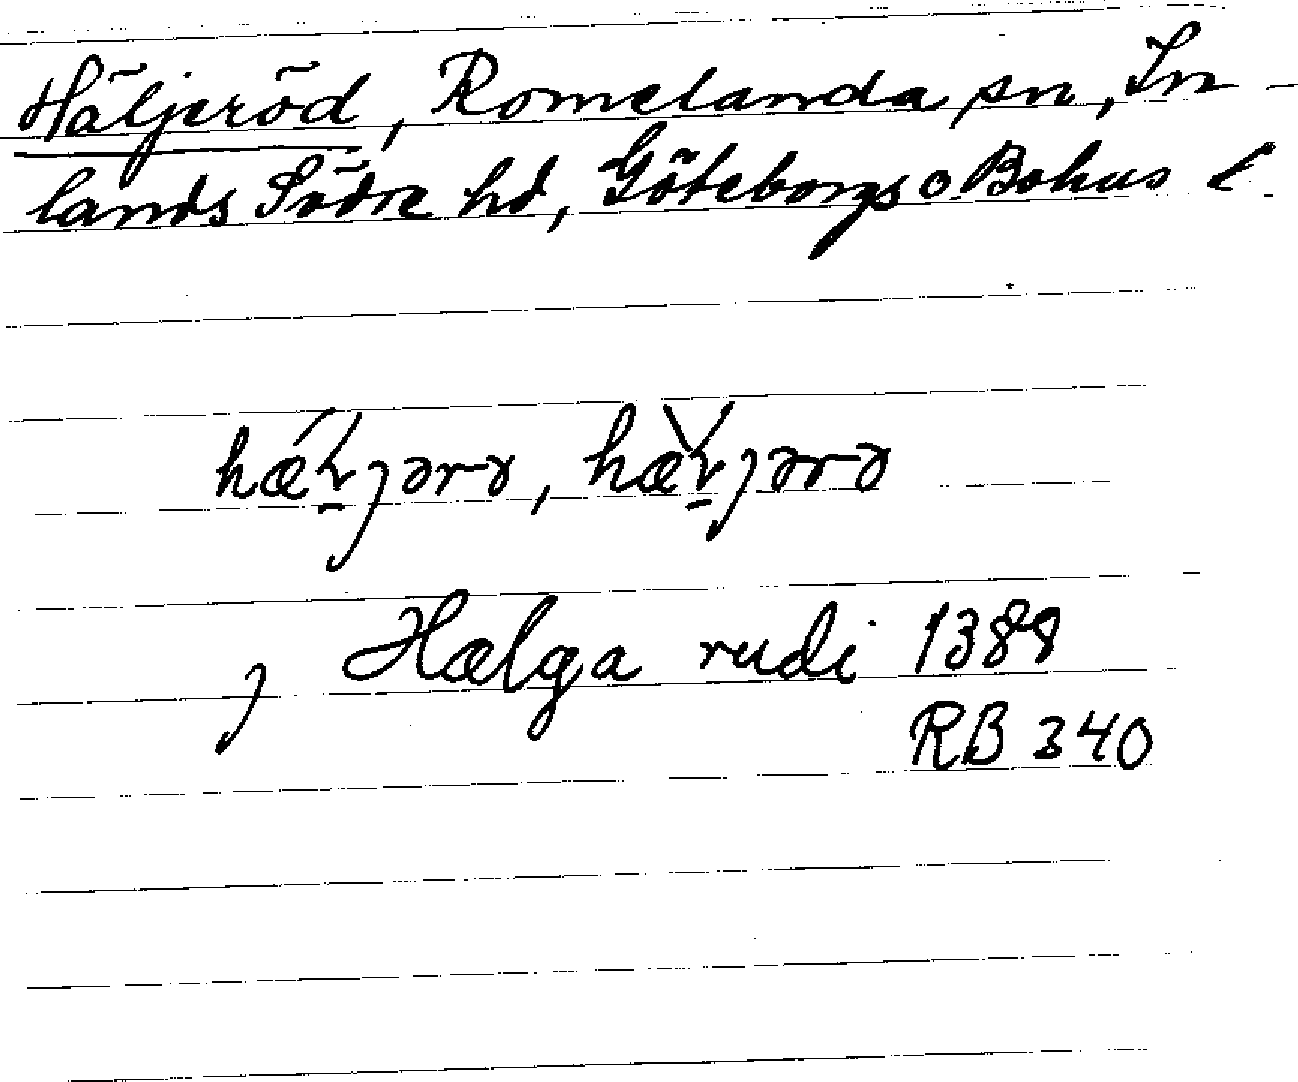 Häljeröd, Romelanda sn, In-
lands Södre hd, Göteborgs o Bohus l.
, Hælga rudi 1388
RB 340